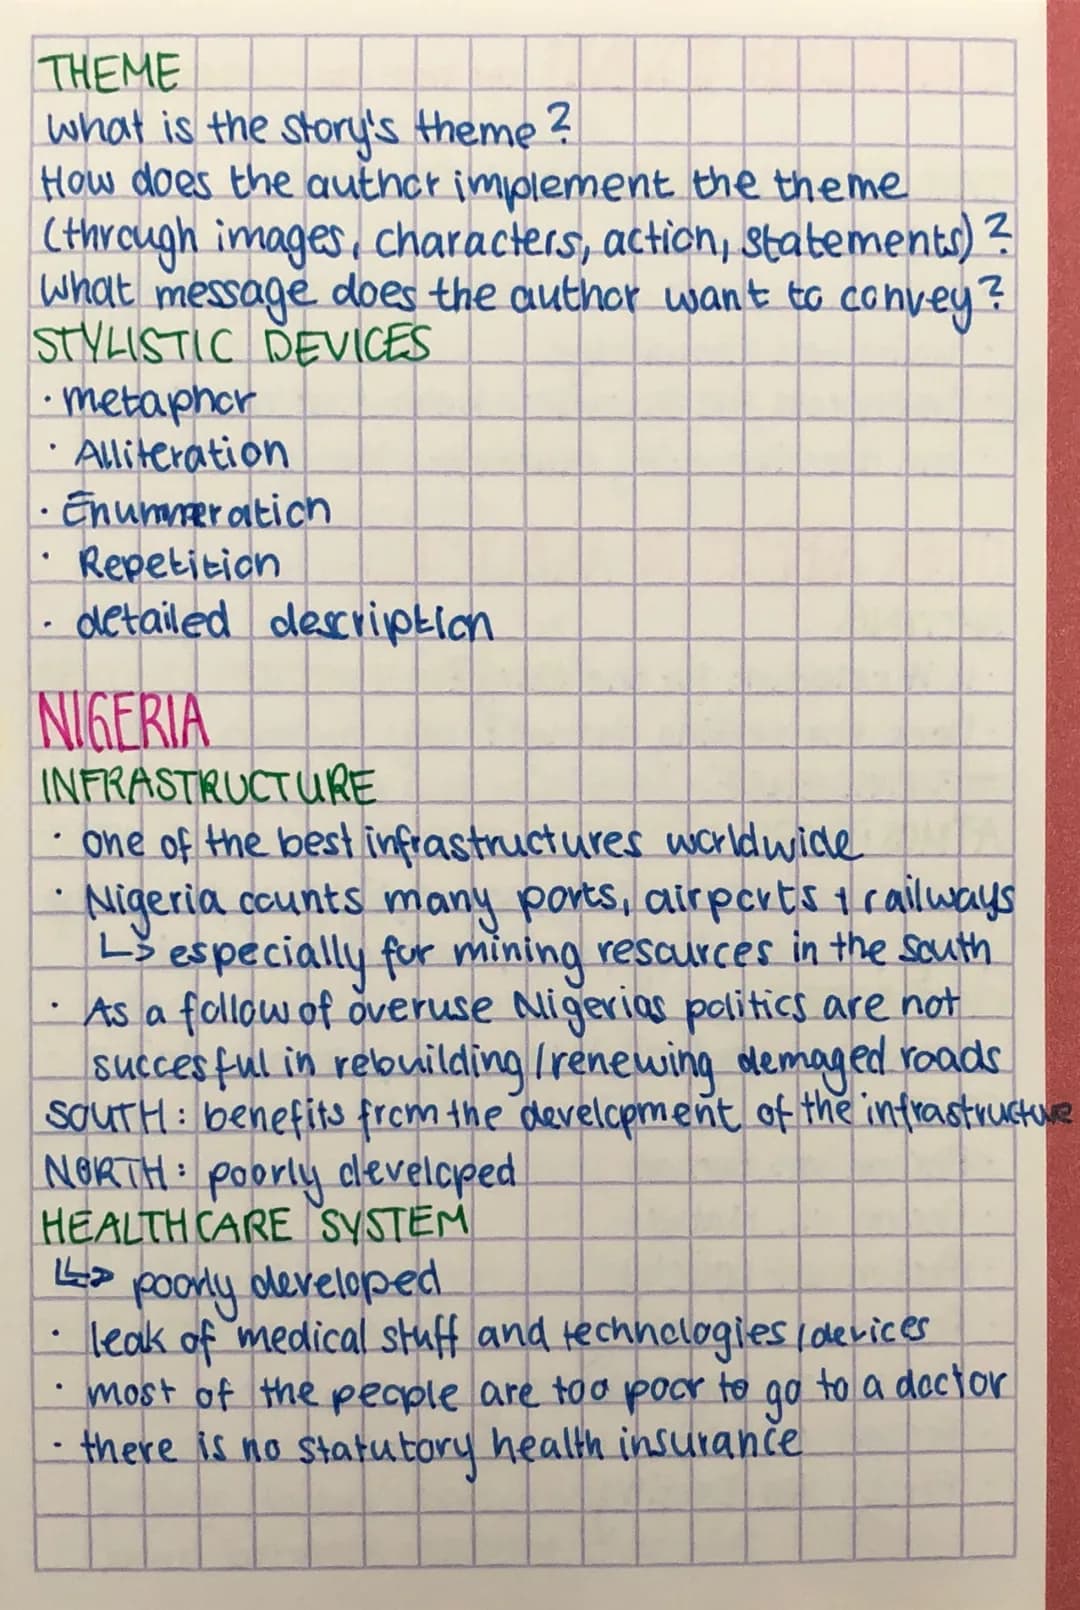 THEME
What is the story's theme?
How does the author implement the theme
(through images, characters, action, statements)?
What message does the author want to convey?
STYLISTIC DEVICES
· metaphor
· Alliteration
· Enummeration
· Repetition
· detailed description
NIGERIA
INFRASTRUCTURE
· one of the best infrastructures worldwide
· Nigeria counts many ports, airports + railways
↳ especially for mining resources in the south
· As a follow of overuse Nigerias politics are not
succesful in rebuilding/renewing demaged roads
SOUTH: benefits from the development of the infrastructure
NORTH: poorly developed
HEALTHCARE SYSTEM
↳ poorly developed
· leak of medical stuff and technologies/devices
· most of the people are too poor to go to a doctor
· there is no statutory health insurance